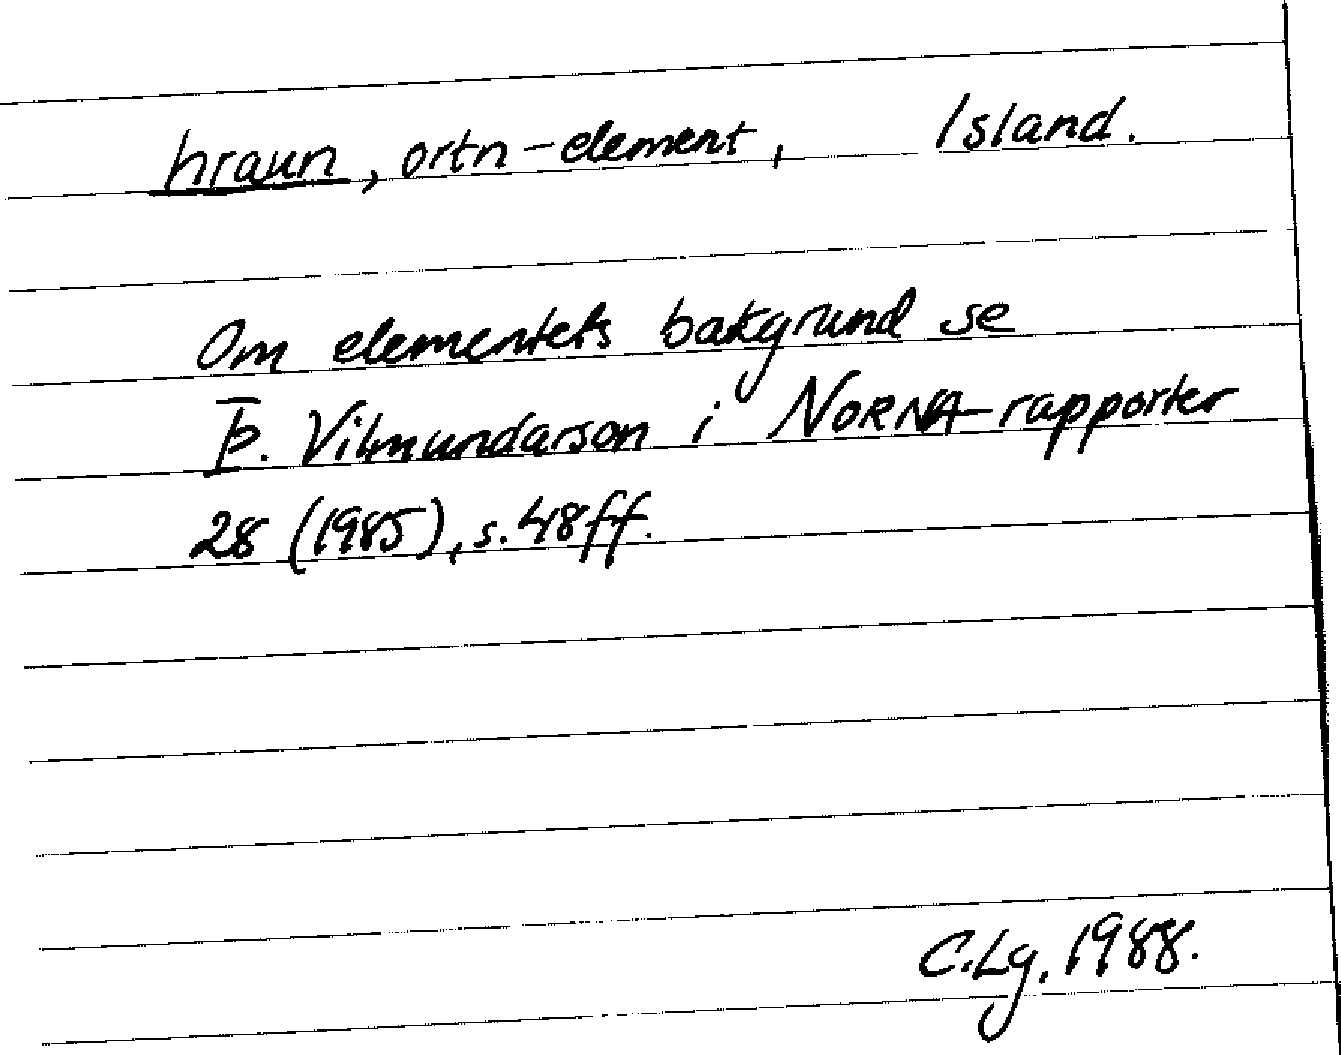 hraun, ortn-element, Island.
Om elementets bakgrund se
Þ. Vilmundarson i NORNA-rapporter
28 (1985), s. 48ff.
C.Lg. 1988.